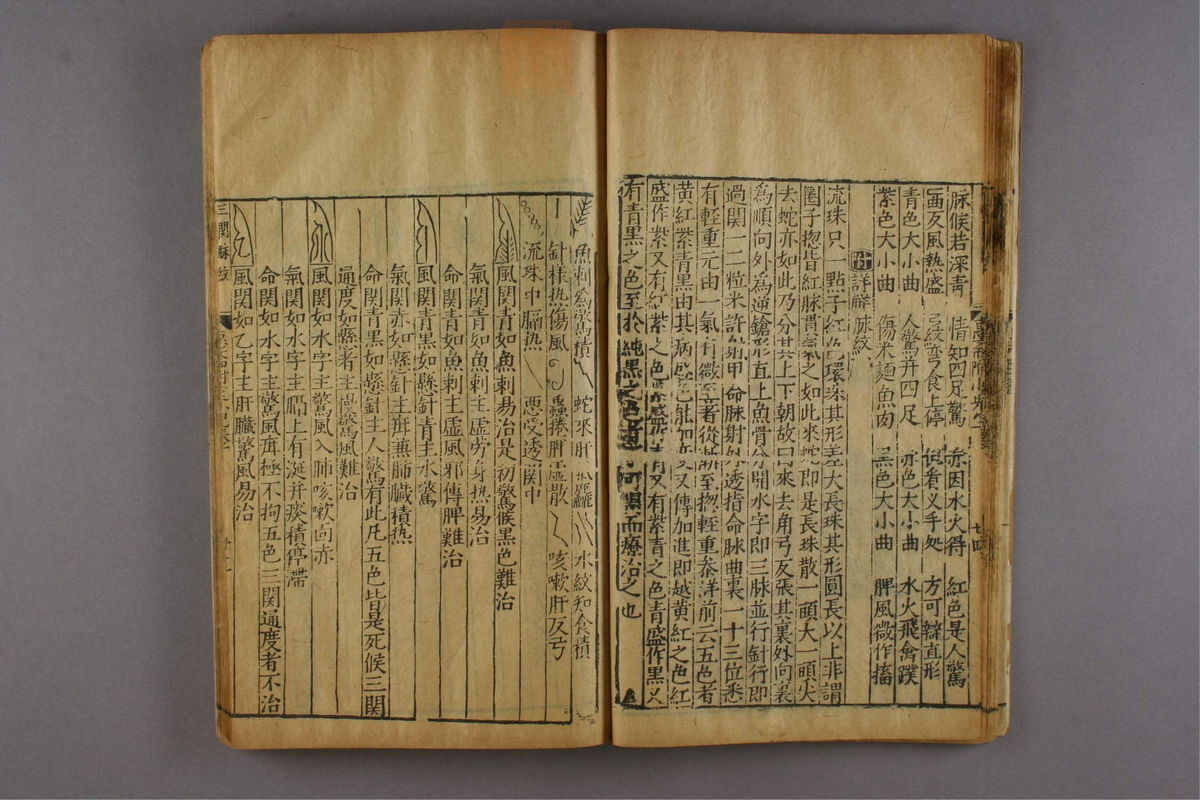 脉候若深青 情知四足驚 赤因水火得 紅色是人驚
風熱盛 弯食上停 但看义手処 方可辯直形
青色大小曲 人驚并四足 赤色大小曲 水火飛禽蹼
紫色大小曲 傷米麺魚肉 黑色大小曲 脾風微作搐
附 詳觧脉紋
流珠只一點子紅色環珠其形差大長珠其形圓長以上非謂
圈子揔皆紅脉貫氣之如此來蛇即是長珠散一頭大一頭尖
去蛇亦如此乃分其上下朝故曰來去角弓反張其裏外向裏
為順向外為逆鎗形直上魚骨分開水字即三脉並行針行即
過関一二粒米許射甲命脉射外透指命脉曲裏一十三位悉
有輕重元由一氣有微至著從漸至揔輕重泰洋前云五色者
黄紅紫青黒由其病盛色能加変又傳加進即越黄紅之色紅
盛作紫又有紅紫之色紫盛作青又有紫青之色青盛作黒又
有青黒之色至於純黒之色者不可而療治之也
魚刺為驚積 蛇來肝 水紋知食積
針樣热傷風 肝虚散 咳嗽肝反弓
流珠中膈热 悪受透関中
風関青如魚刺易治是初驚候黒色難治
氣関青如魚刺主虚劳身热易治
命関青如魚刺主虚風邪傳脾難治
風関青黒如懸針青主水驚
氣関亦如懸針主疳兼肺臟積热
命関青黒如懸針主人驚有此凡五色皆是死候三関
通度如懸者主慢驚風難治
風関如水字主驚風入肺咳嗽面赤
氣関如水字主膈上有涎并痰積停滯
命関如水字主驚風疳極不拘五色三関通度者不治
風関如乙字主肝臟驚風易治
三関脉紋